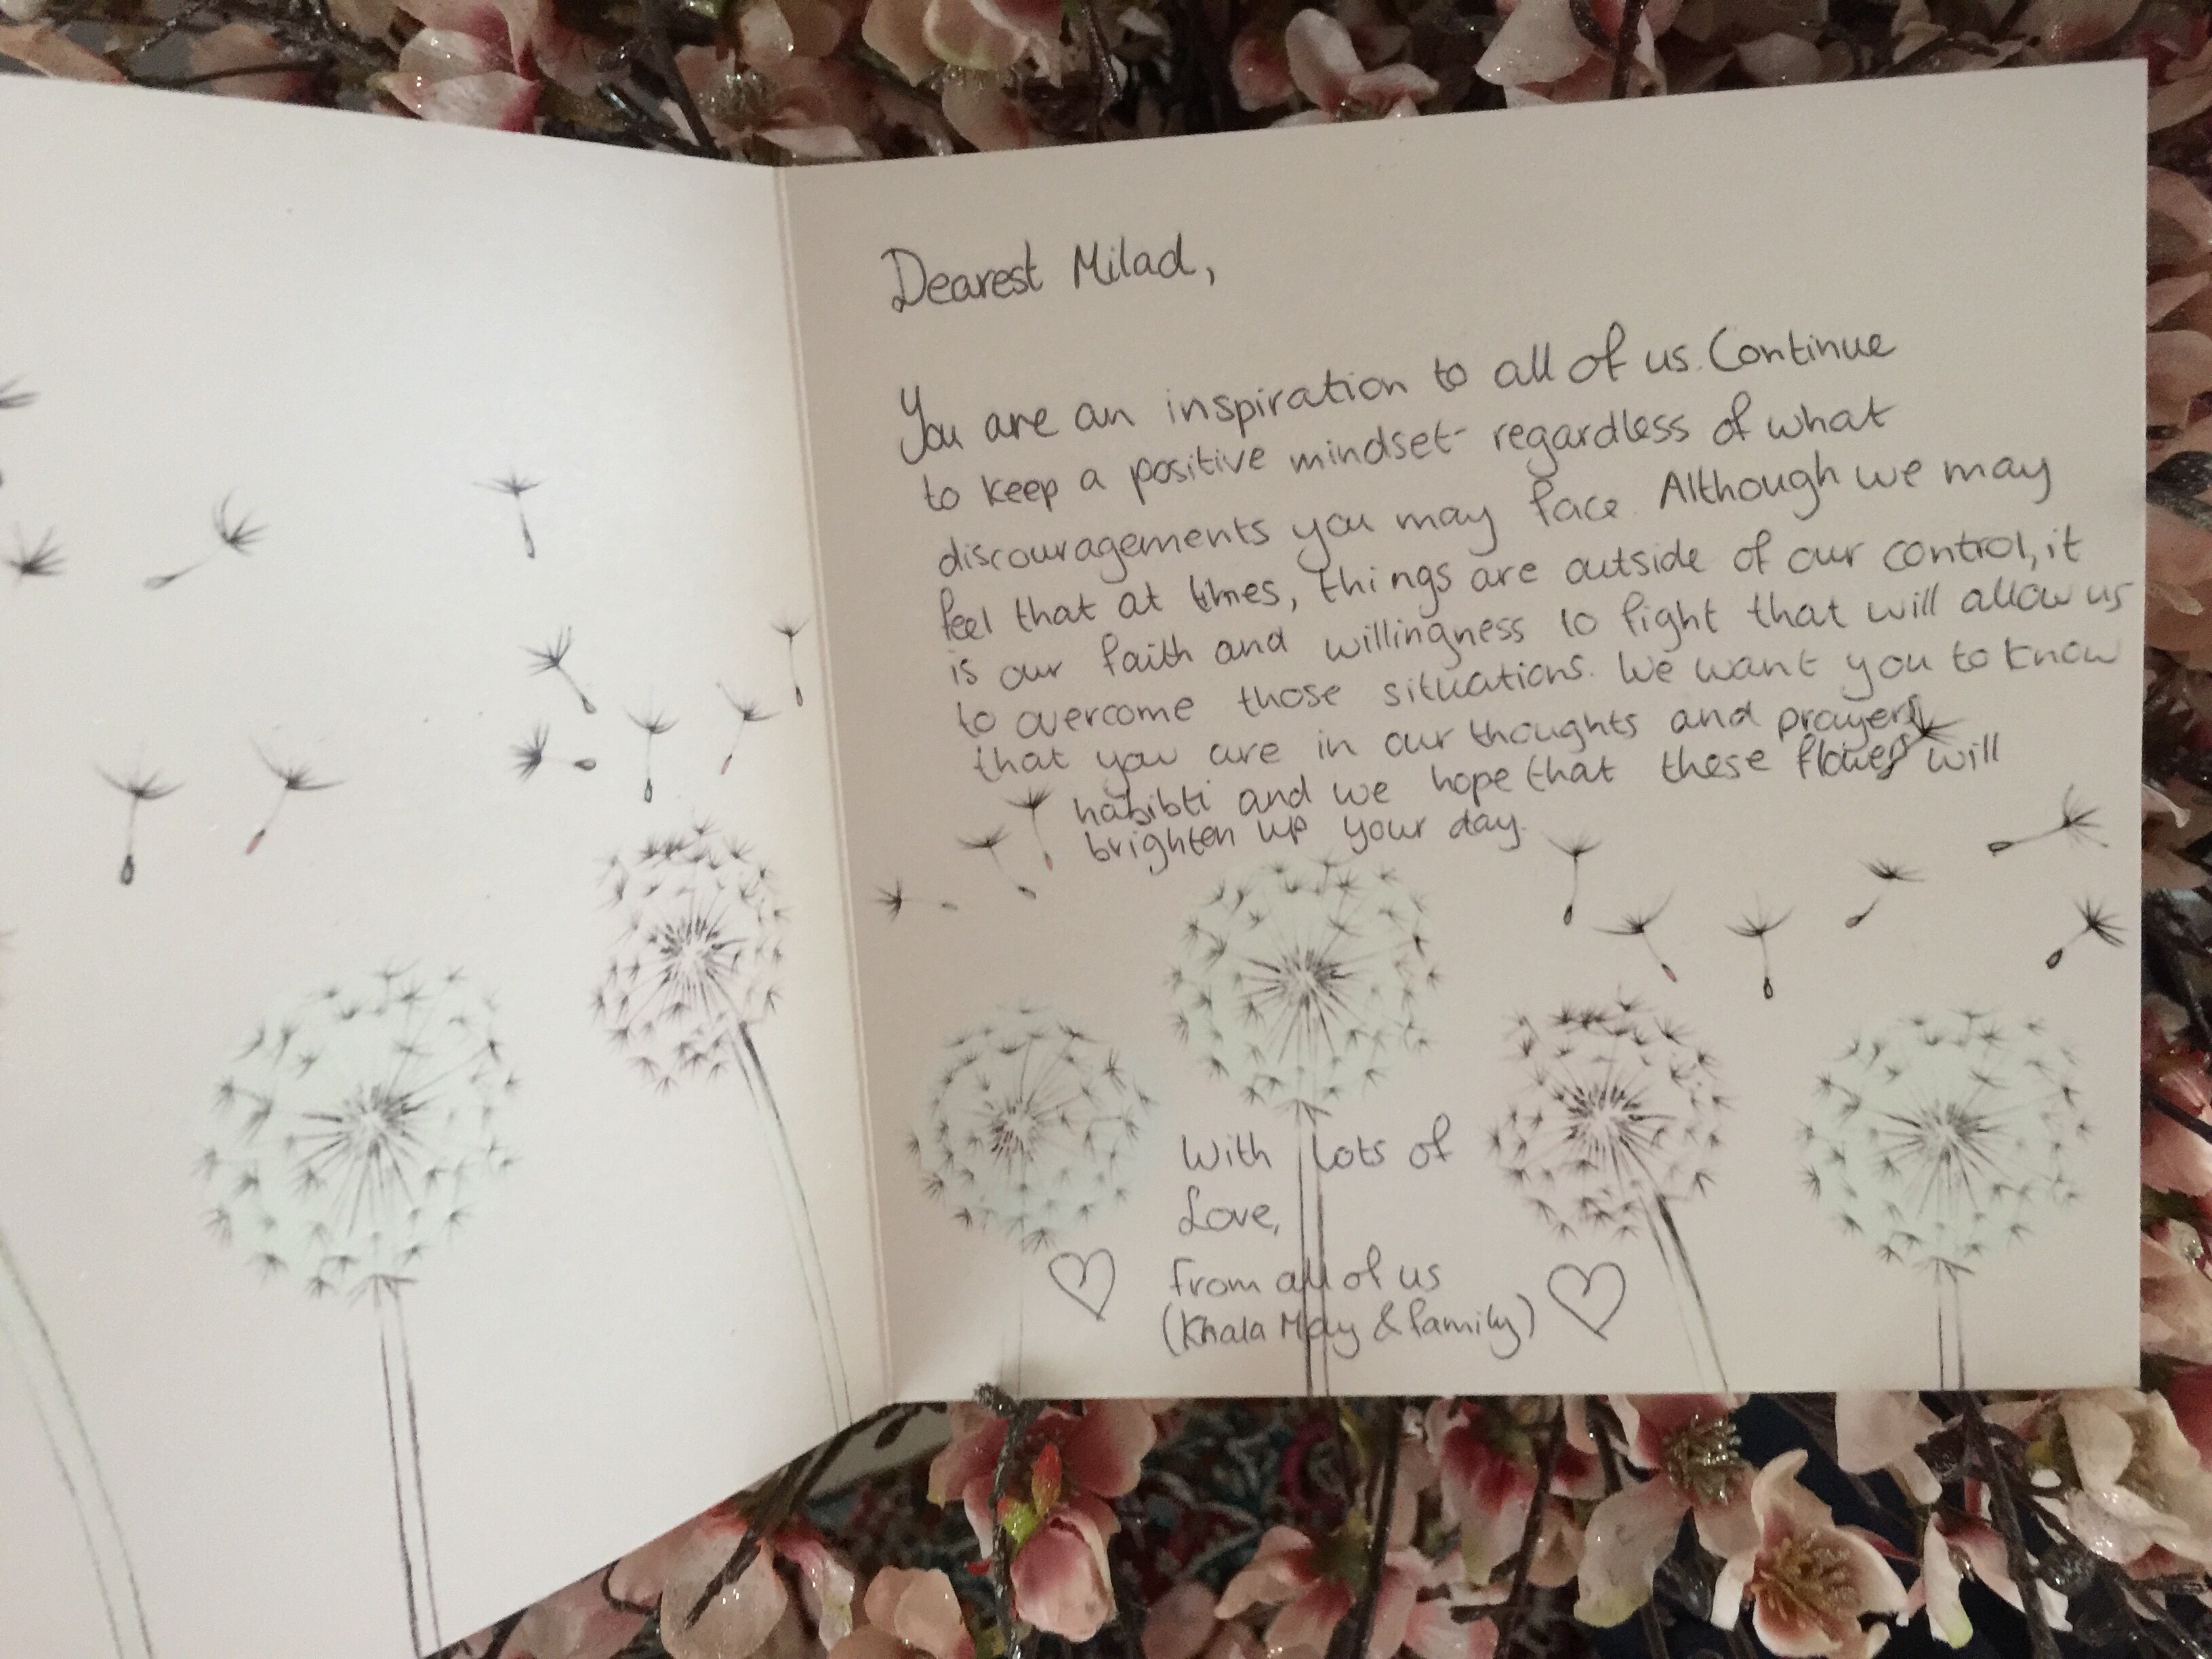 Dearest Milad,
You are an inspiration to all of us. Continue
to keep a positive mindset- regardless of what
discouragements you may face. Although we may
feel that at times, things are outside of our control, it
is our faith and willingness to fight that will allow us
to overcome those situations. We want you to know
that you are in our thoughts and prayers
habibti and we hope that these flowers will
brighten up your day.
With lots of
Love,
From all of us
(Khala May & family)